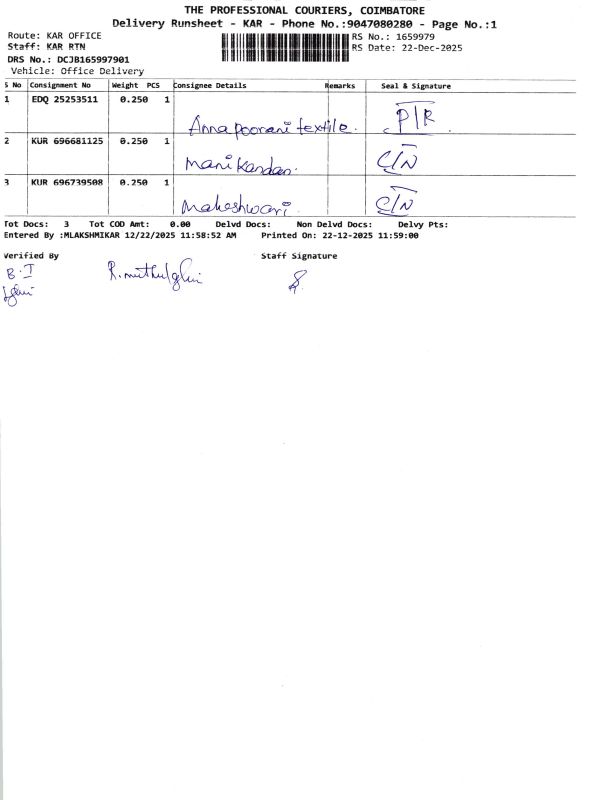 THE PROFESSIONAL COURIERS, COIMBATORE
Delivery Runsheet - KAR - Phone No.:9047080280 - Page No.:1
Route: KAR OFFICE
Staff: KAR RTN
DRS No.: DCJB165997901
Vehicle: Office Delivery
RS No.: 1659979
RS Date: 22-Dec-2025
S No Consignment No Weight PCS Consignee Details Remarks Seal & Signature
1 EDQ 25253511 0.250 1
Annapoorani textile. P/R
2 KUR 696681125 0.250 1
Manikandan. C/N
3 KUR 696739508 0.250 1
Maheshwari. C/N
Tot Docs: 3 Tot COD Amt: 0.00 Delvd Docs: Non Delvd Docs: Delvy Pts:
Entered By :MLAKSHMIKAR 12/22/2025 11:58:52 AM Printed On: 22-12-2025 11:59:00
Verified By Staff Signature
B.I